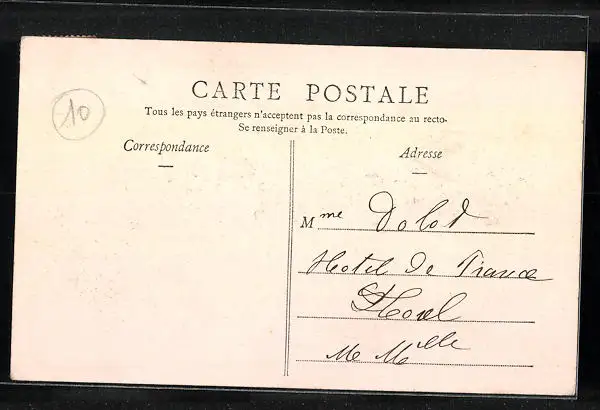 10
CARTE POSTALE
Tous les pays étrangers n'acceptent pas la correspondance au recto-
Se renseigner à la Poste.
Correspondance
Adresse
Mme Dolot
Hotel De France
Me Mlle